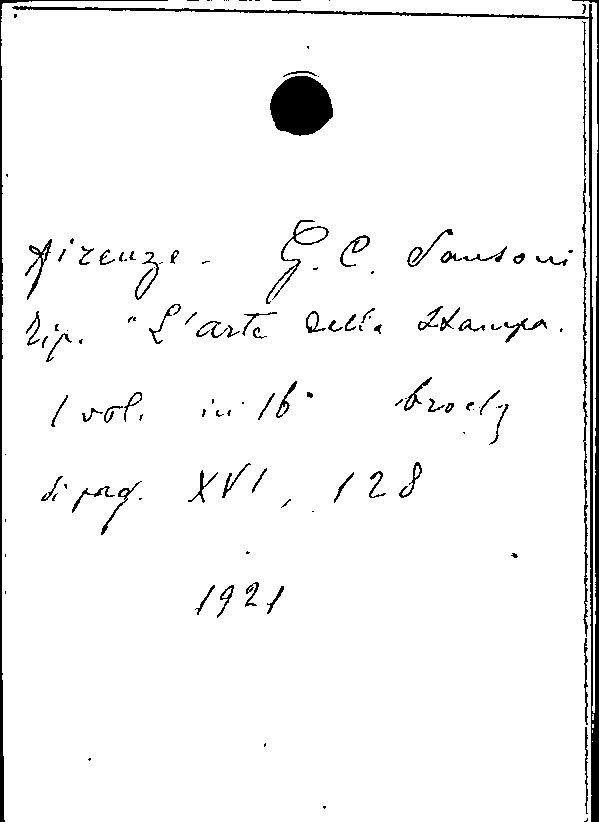 Firenze - G. C. Sansoni
Tip. "L'arte della Stampa.
1 vol. in 16° broch
di pag. XVI, 128
1921